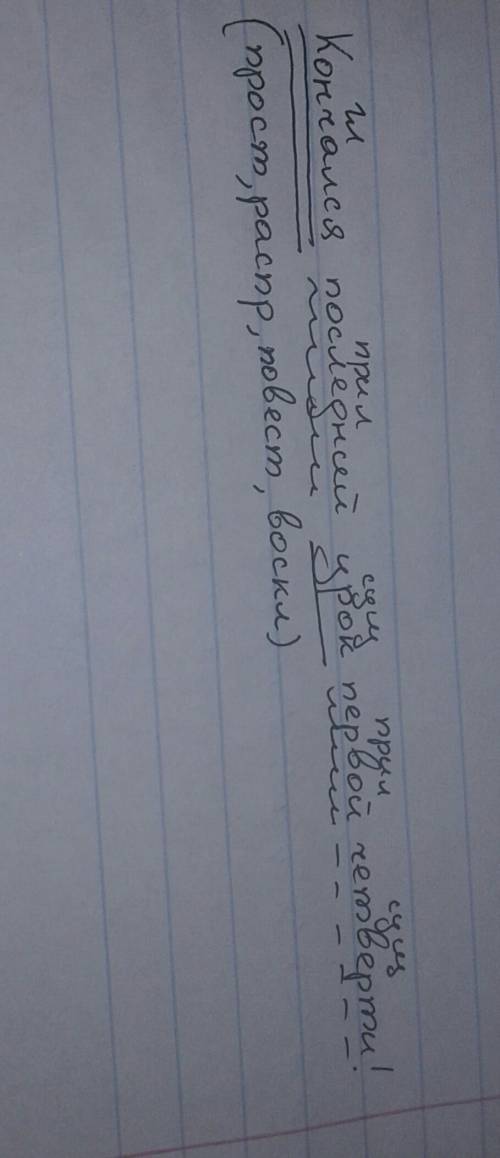 гл прил сущ прил сущ
Кончался последний урок первой четверти!
(прост, распр, повест, воскл)